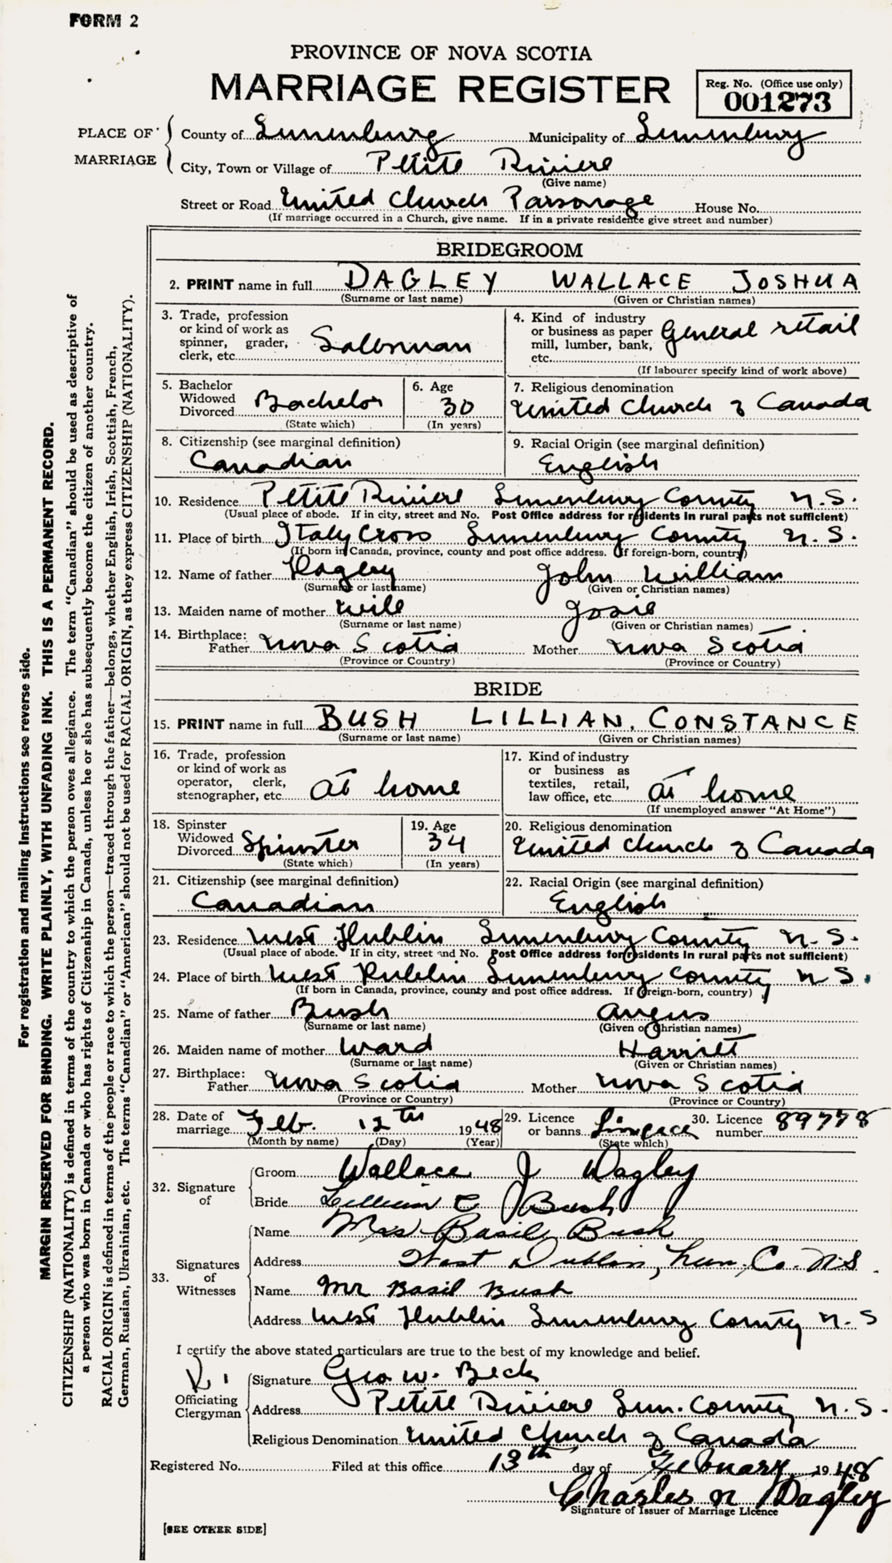 FORM 2
PROVINCE OF NOVA SCOTIA
MARRIAGE REGISTER
Reg. No. (Office use only)
001273
PLACE OF MARRIAGE
County of Lunenburg Municipality of Lunenburg
City, Town or Village of Petite Riviere
(Give name)
Street or Road United Church Parsonage House No.
(If marriage occurred in a Church, give name. If in a private residence give street and number)
BRIDEGROOM
2. PRINT name in full DAGLEY WALLACE JOSHUA
(Surname or last name) (Given or Christian names)
3. Trade, profession or kind of work as spinner, grader, clerk, etc. Salesman
4. Kind of industry or business as paper mill, lumber, bank, etc. General retail
(If labourer specify kind of work above)
5. Bachelor Widowed Divorced Bachelor
(State which)
6. Age 30
(In years)
7. Religious denomination
United Church of Canada
8. Citizenship (see marginal definition)
Canadian
9. Racial Origin (see marginal definition)
English
10. Residence Petite Riviere Lunenburg County N.S.
(Usual place of abode. If in city, street and No. Post Office address for residents in rural parts not sufficient)
11. Place of birth Italy Cross Lunenburg County N.S.
(If born in Canada, province, county and post office address. If foreign-born, country)
12. Name of father Dagley John William
(Surname or last name) (Given or Christian names)
13. Maiden name of mother Wile Josie
(Surname or last name) (Given or Christian names)
14. Birthplace: Father Nova Scotia Mother Nova Scotia
(Province or Country) (Province or Country)
BRIDE
15. PRINT name in full BUSH LILLIAN, CONSTANCE
(Surname or last name) (Given or Christian names)
16. Trade, profession or kind of work as operator, clerk, stenographer, etc. At home
17. Kind of industry or business as textiles, retail, law office, etc. At home
(If unemployed answer "At Home")
18. Spinster Widowed Divorced Spinster
(State which)
19. Age 34
(In years)
20. Religious denomination
United Church of Canada
21. Citizenship (see marginal definition)
Canadian
22. Racial Origin (see marginal definition)
English
23. Residence West Dublin Lunenburg County N.S.
(Usual place of abode. If in city, street and No. Post Office address for residents in rural parts not sufficient)
24. Place of birth West Dublin Lunenburg County N S.
(If born in Canada, province, county and post office address. If foreign-born, country)
25. Name of father Bush Angus
(Surname or last name) (Given or Christian names)
26. Maiden name of mother Ward Harriet
(Surname or last name) (Given or Christian names)
27. Birthplace: Father Nova Scotia Mother Nova Scotia
(Province or Country) (Province or Country)
28. Date of marriage Feb. 12th 1948
(Month by name) (Day) (Year)
29. Licence or banns Lincece
(State which)
30. Licence number 89778
32. Signature of
Groom Wallace J Dagley
Bride Lillian C Bush
33. Signatures of Witnesses
Name Mrs Basile Bush
Address West Dublin, Lun. Co. N.S.
Name Mr Basil Bush
Address West Dublin Lunenburg County N.S
I certify the above stated particulars are true to the best of my knowledge and belief.
Officiating Clergyman
Signature Geo W. Beck
Address Petite Riviere Lun. County N.S.
Religious Denomination United Church of Canada
Registered No. Filed at this office 13th day of February 1948
Charles N Dagley
Signature of Issuer of Marriage Licence
[SEE OTHER SIDE]
For registration and mailing instructions see reverse side.
MARGIN RESERVED FOR BINDING. WRITE PLAINLY, WITH UNFADING INK. THIS IS A PERMANENT RECORD.
CITIZENSHIP (NATIONALITY) is defined in terms of the country to which the person owes allegiance. The term "Canadian" should be used as descriptive of
a person who was born in Canada or who has rights of Citizenship in Canada, unless he or she has subsequently become the citizen of another country.
RACIAL ORIGIN is defined in terms of the people or race to which the person—traced through the father—belongs, whether English, Irish, Scottish, French,
German, Russian, Ukrainian, etc. The terms "Canadian" or "American" should not be used for RACIAL ORIGIN, as they express CITIZENSHIP (NATIONALITY).